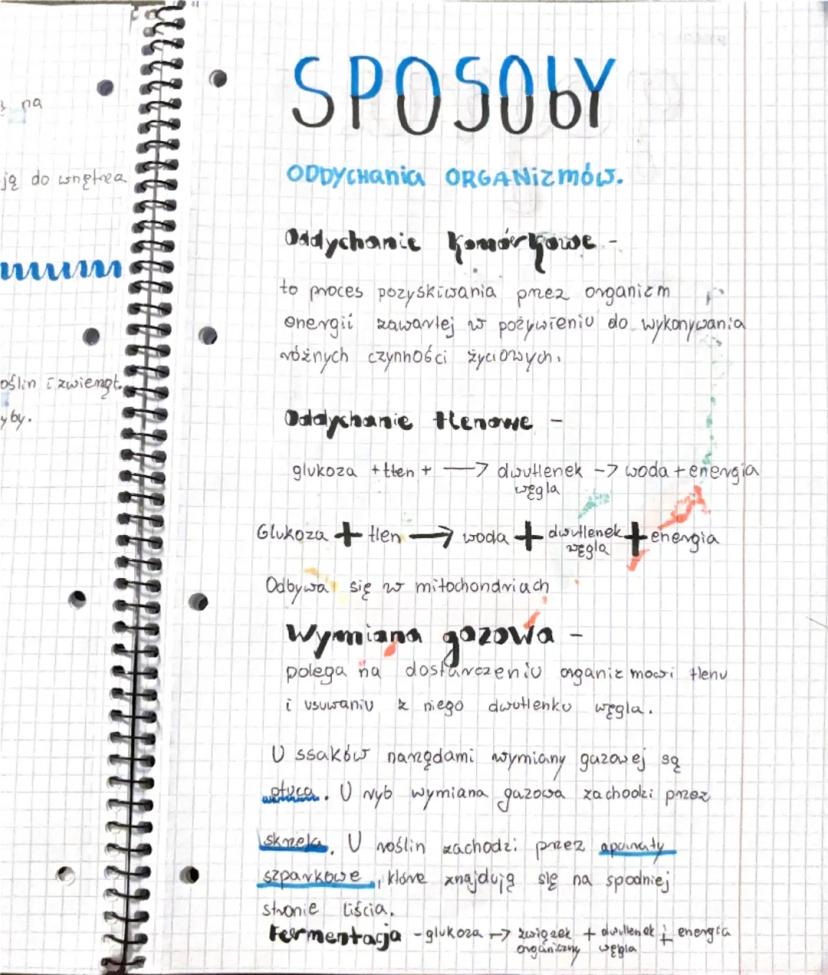 ę na
ją do wnętrza
oślin i zwierzęt.
yby.
SPOSOBY
ODDYCHANIA ORGANIZMÓW.
Oddychanie komórkowe -
to proces pozyskiwania przez organizm
energii zawartej w pożywieniu do wykonywania
różnych czynności życiowych.
Oddychanie tlenowe -
glukoza + tlen + → dwutlenek → woda + energia
węgla
Glukoza + tlen → woda + dwutlenek + energia
węgla
Odbywa się w mitochondriach
Wymiana gazowa -
polega na dostarczeniu organizmowi tlenu
i usuwaniu z niego dwutlenku węgla.
U ssaków narządami wymiany gazowej są
płuca. U ryb wymiana gazowa zachodzi przez
skrzela. U roślin zachodzi przez aparaty
szparkowe, które znajdują się na spodniej
stronie liścia.
Fermentacja - glukoza → związek + dwutlenek + energia
organiczny węgla